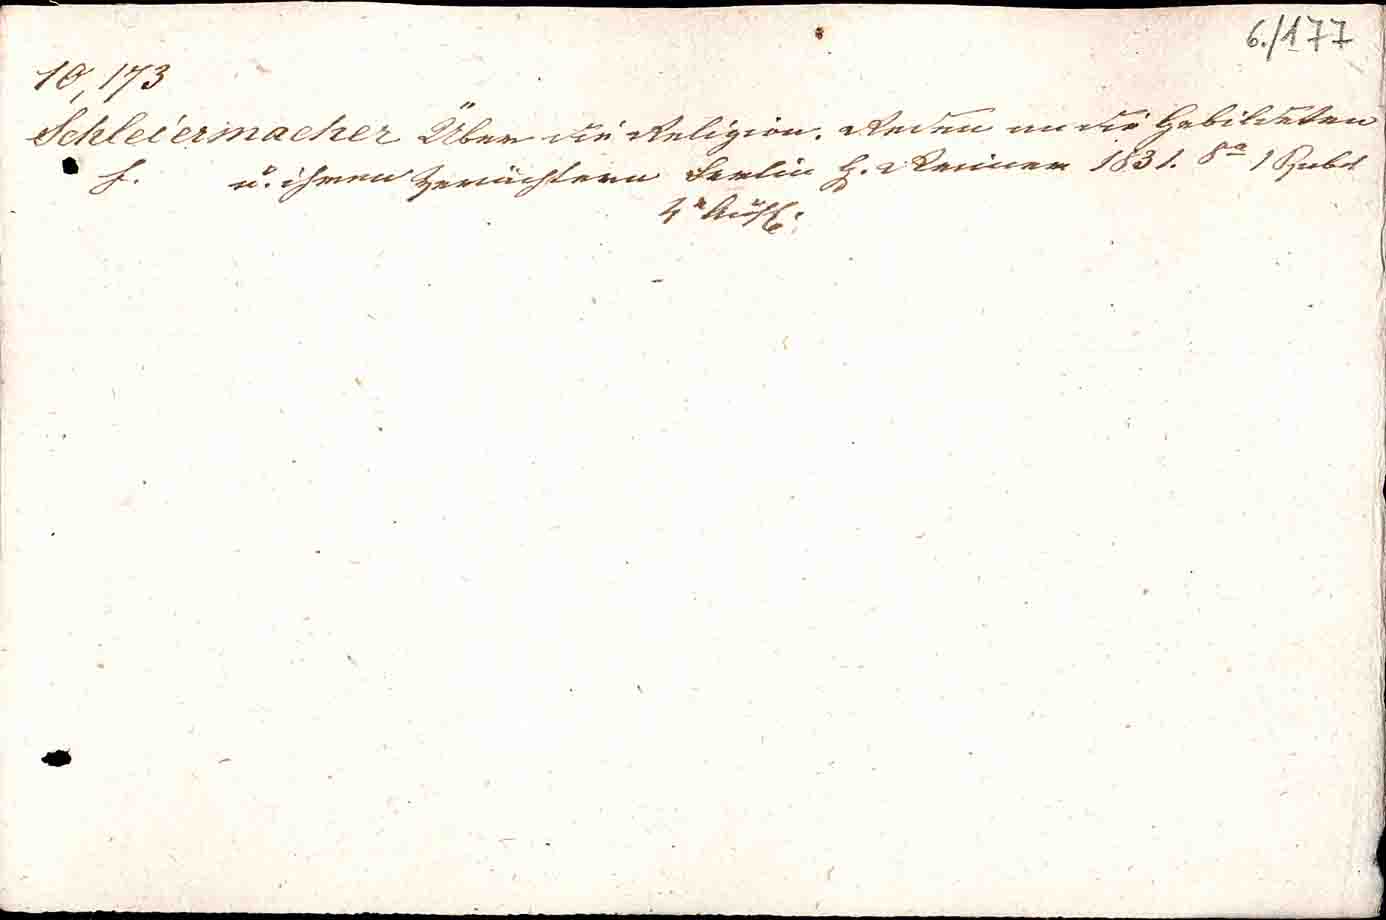 6./177
10,173
Schleiermacher Über die Religion. Reden an die Gebildeten
F. u. ihren Verächtern Berlin G. Reimer 1831. 8° 1 Hbd
4e Aufl.